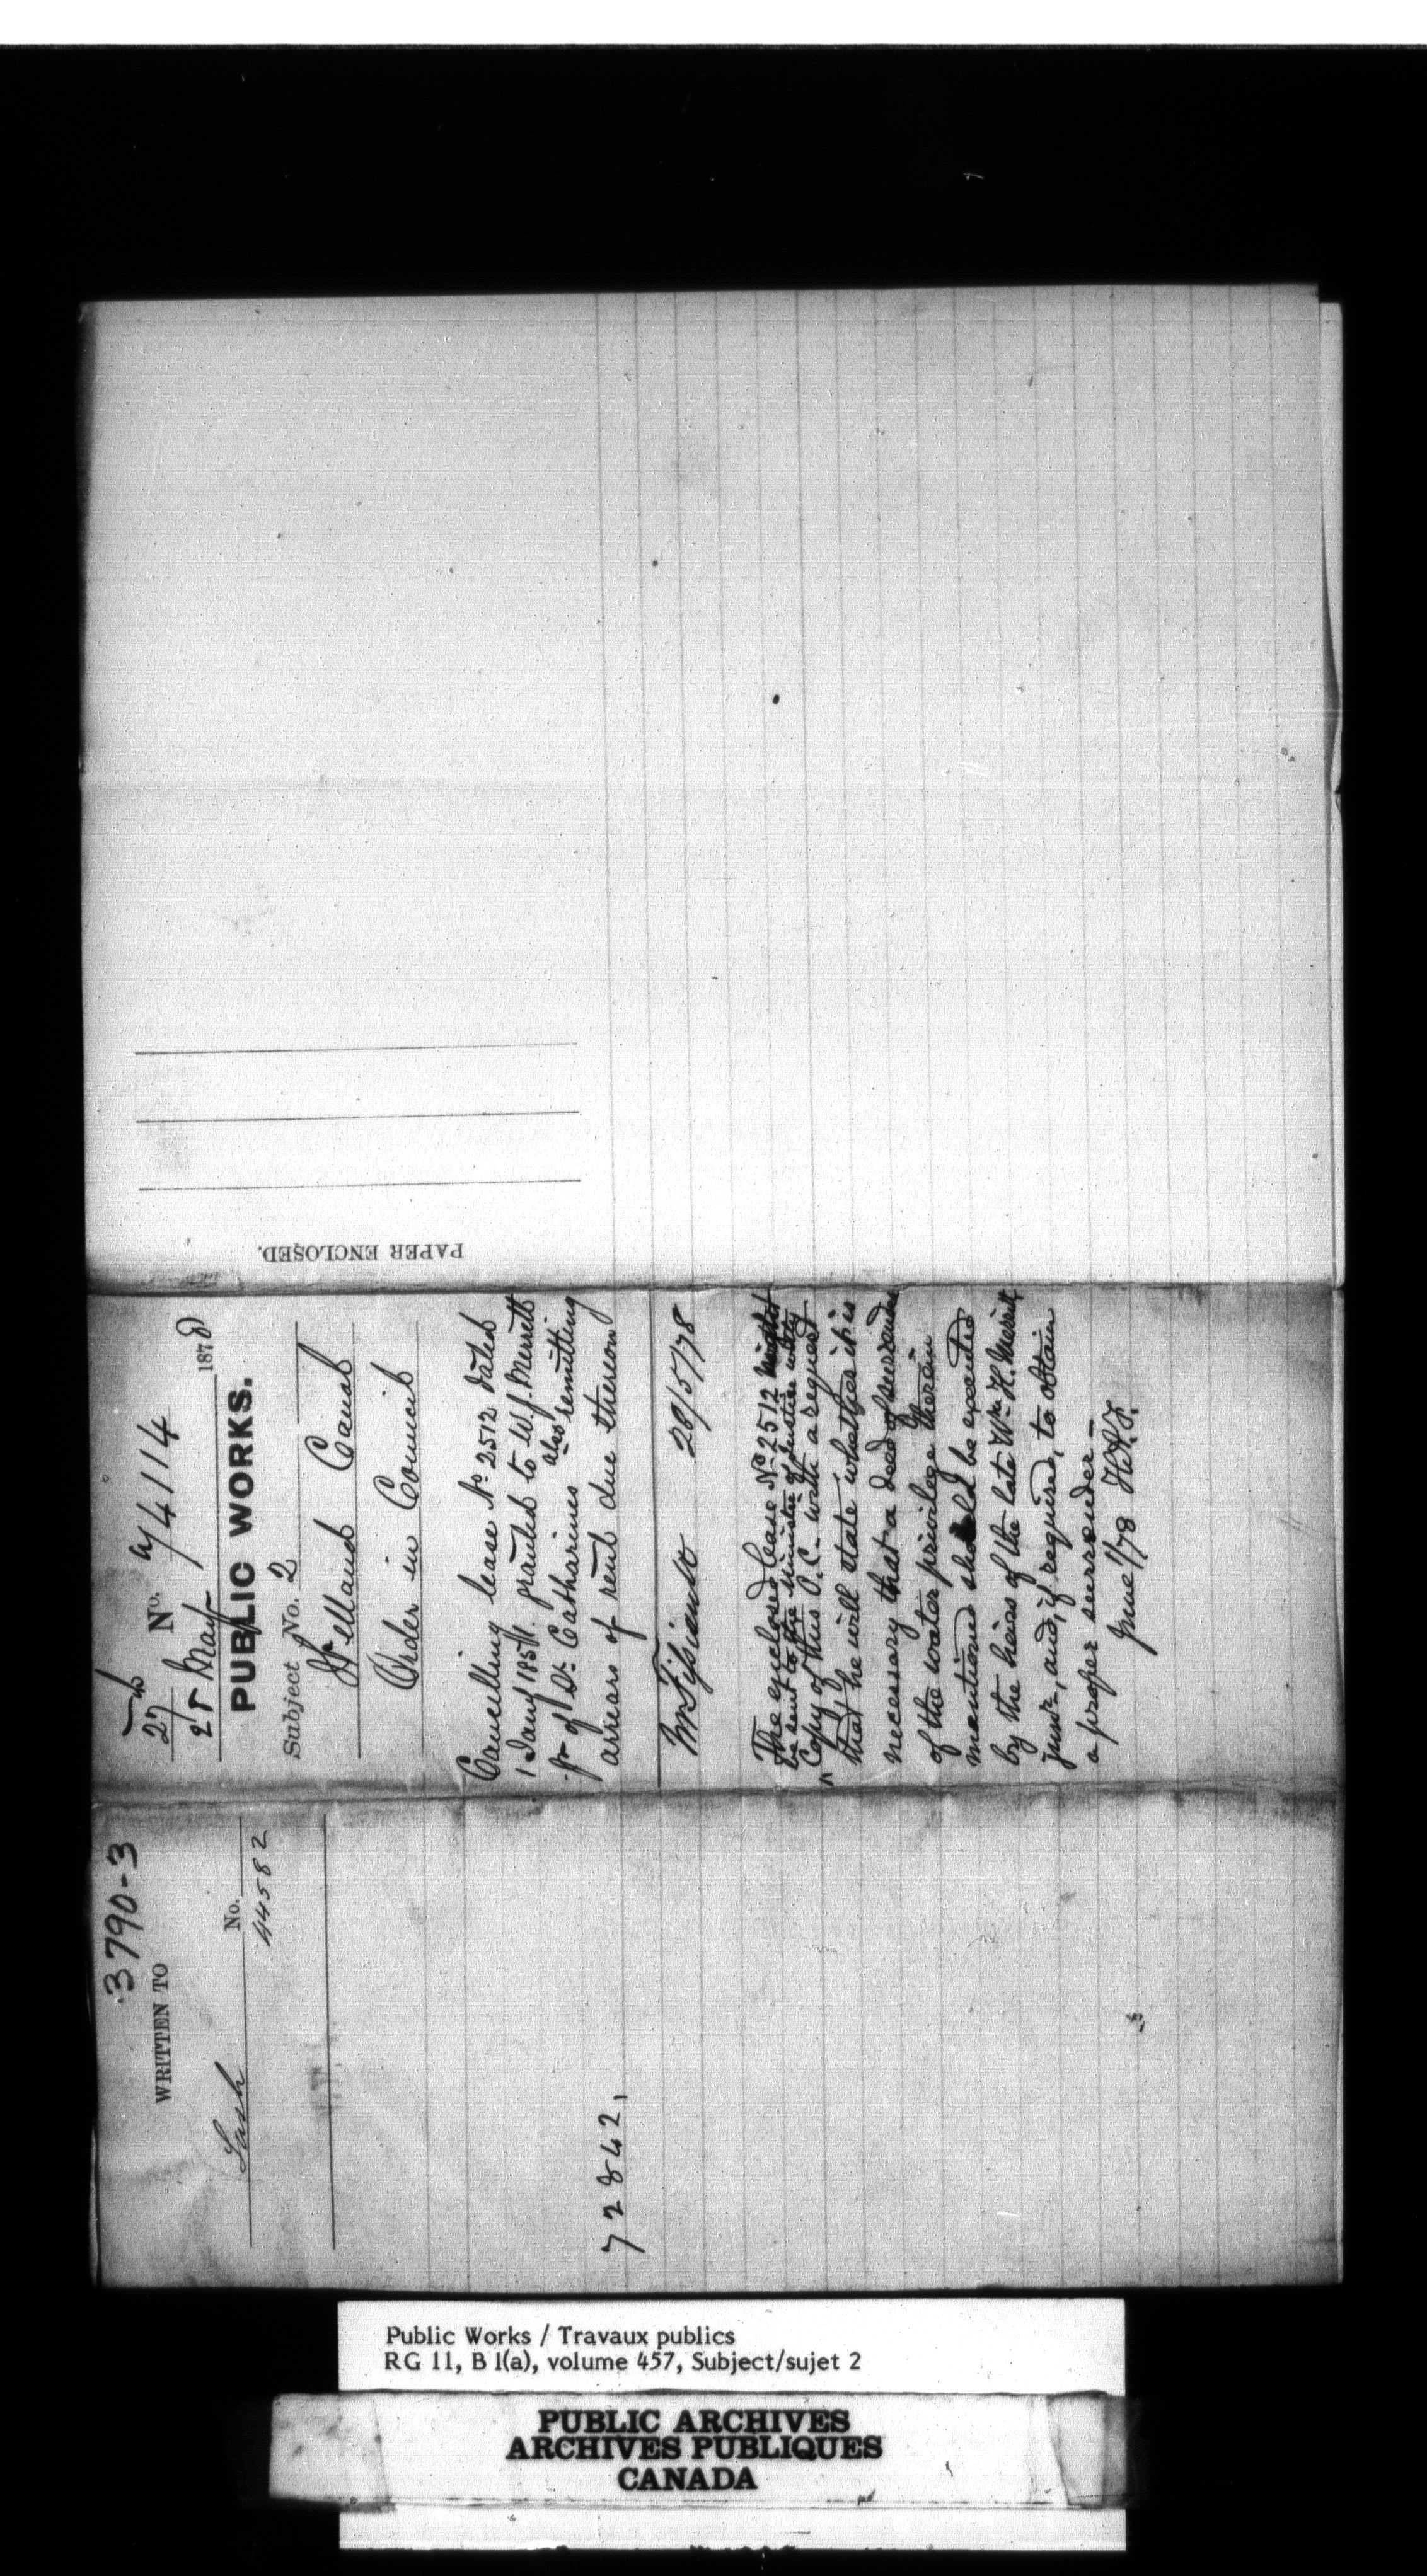 3790-3
WRITTEN TO
No.
Lash
44582
72842
27 No. 74114
25 May 1878
PUBLIC WORKS.
Subject No. 2
Welland Canal
Order in Council
Cancelling lease No 2512 dated
1 Jany 185 granted to W. J. Merritt
Jr of St. Catharines also remitting
arrears of rent due thereon
28/5/78
The enclosed lease No 2512
be sent to the Minister of Justice with
Copy of this O.C. with a request
that he will state whether it is
necessary that a deed of surrender
of the water privilege therein
mentioned should be executed
by the heirs of the late Wm H. Merritt,
Junr, and, if required, to obtain
a proper surrender—
June 1/78
PAPER ENCLOSED.
Public Works / Travaux publics
RG 11, B 1(a), volume 457, Subject/sujet 2
PUBLIC ARCHIVES
ARCHIVES PUBLIQUES
CANADA